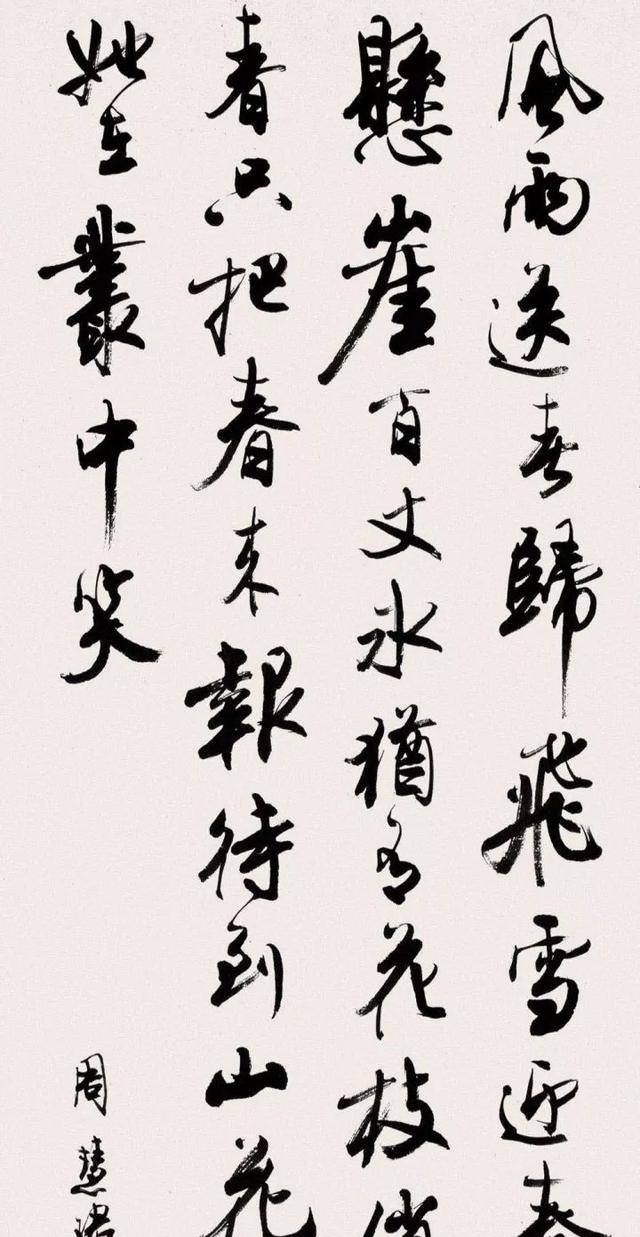 風雨送春歸飛雪迎春
懸崖百丈氷猶有花枝俏
春只把春来報待到山花
她在叢中笑
周慧珺